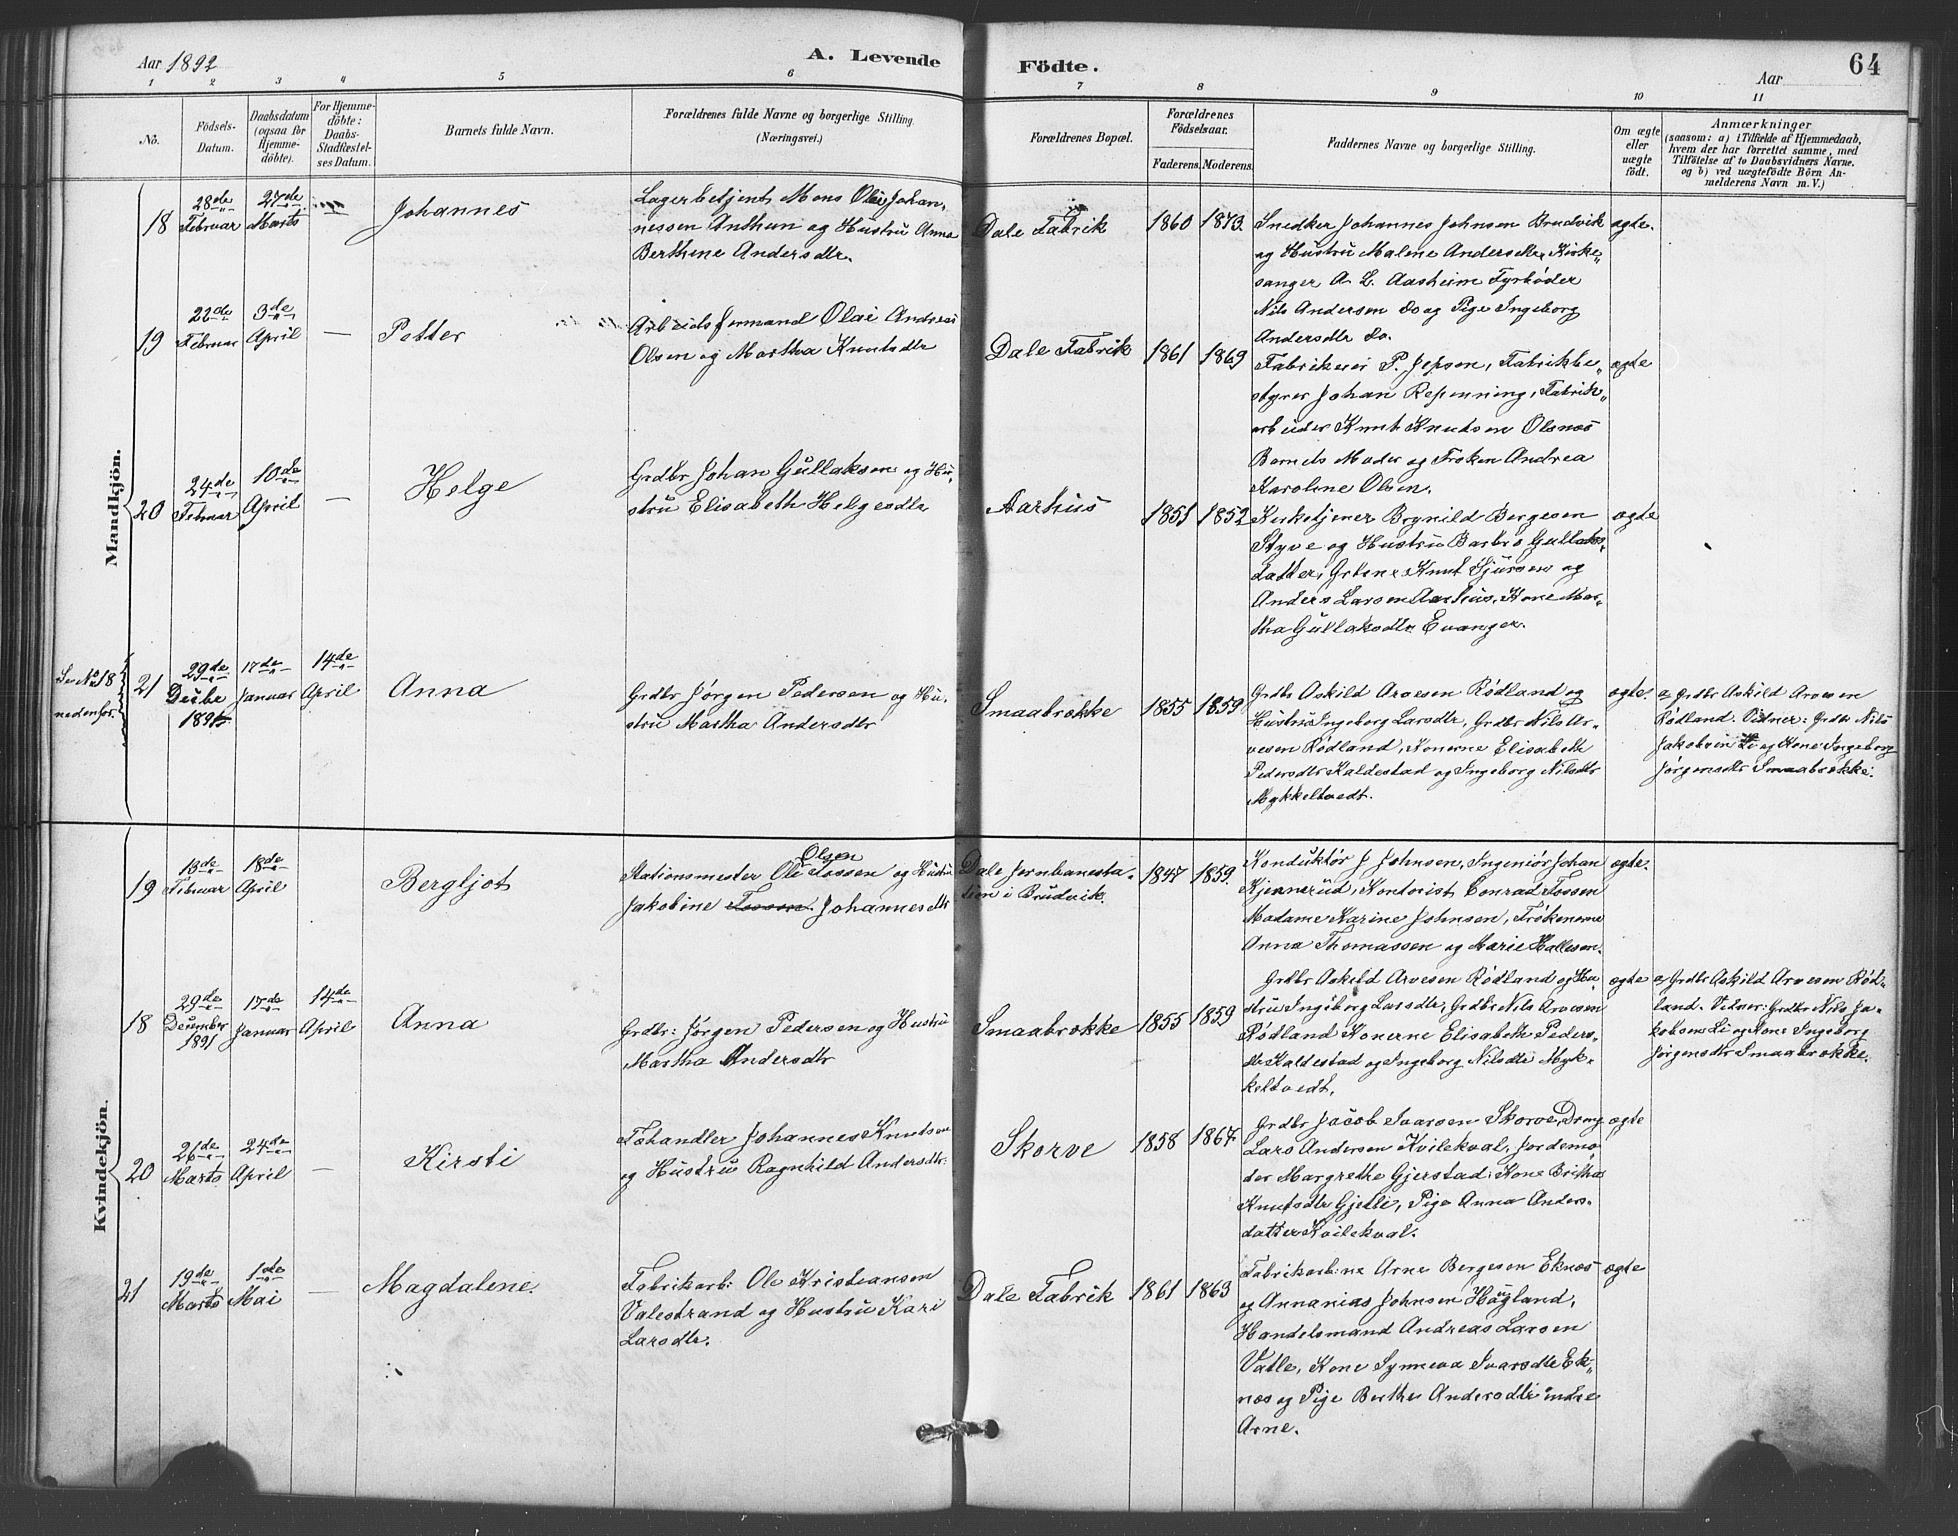 Aar 1892
A. Levende
Födte.
Aar
64
1 2 3 4 5 6 7 8 9 10 11
No.
Födsels-
Datum.
Daabsdatum
(ogsaa for
Hjemme-
döbte).
For Hjemme-
döbte:
Daabs-
Stadfæstel-
ses Datum.
Barnets fulde Navn.
Forældrenes fulde Navne og borgerlige Stilling.
(Næringsvei.)
Forældrenes Bopæl.
Forældrenes
Födselsaar.
Faderens. Moderens.
Faddernes Navne og borgerlige Stilling.
Om ægte
eller
uægte
födt.
Anmærkninger
(saasom: a) i Tilfælde af Hjemmedaab,
hvem der har forrettet samme, med
Tilföielse af to Daabsvidners Navne.
og b) ved uægtefödte Börn An-
melderens Navn m. V.)
Mandkjön.
18
28de
Februar
27de
Marts
Johannes
Lagerbetjent Mons Olai Johan-
nessen Anthun og Hustru Anna
Berthine Andersdtr.
Dale Fabrik
1860 1873.
Snedker Johannes Johnsen Brudvik
og Hustru Malene Andersdtr, Kirke-
sanger A. L. Aasheim Fyrbøder
Nils Andersen do og Pige Ingeborg
Andersdtr do.
ægte.
19
22de
Februar
3de
April
—
Petter
Arbeidsformand Olai Andreas
Olsen og Martha Knutsdtr
Dale Fabrik
1861 1869
Fabrikeier P. Jepsen, Fabrikbe-
styrer Johan Repenning, Fabrik-
arbeider Knut Knutsen Olsnæs
Barnets Moder og Frøken Andrea
Karoline Olsen.
ægte
20
24de
Februar
10de
April
—
Helge
Grdbr Johan Gullaksen og Hu-
stru Elisabeth Helgesdtr
Aarhus
1851 1852
Kirketjener Brynild Bergesen
Styve og Hustru Barbro Gullaks-
datter, Grbrne Knut Sjursen og
Anders Larsen Aarhus, Kone Mar-
tha Gullaksdtr Evanger.
ægte
Se No 18
nedenfor.
21
29de
Decbr
1891
17de
Januar
14de
April
Anna
Grdbr Jørgen Pedersen og Hu-
stru Martha Andersdtr
Smaabrekke
1855 1859
Grdbr Askild Arvesen Rødland og
Hustru Ingeborg Larsdtr, Grdbr Nils Ar-
vesen Rødland, Konerne Elisabeth
Pedersdtr Kaldestad og Ingeborg Nilsdtr
Mykkeltvedt.
ægte
a, Grdbr Askild Arvesen
Rødland. Vidner: Grdbr Nils
Jakobsen Li og Kone Ingeborg
Jørgensdtr Smaabrekke.
Kvindekjön.
19
13de
Februar
18de
April
Bergljot
Olsen
Stationsmester Ole Fossen og Hustru
Jakobine Fossen Johannesdtr
Dale Jernbanesta-
tion i Brudvik.
1847 1859.
Konduktør J Johnsen, Ingeniør Johan
Kjennerud, Kontorist Conrad Fossen
Madame Karine Johnsen, Frøkenerne
Anna Thomassen og Marie Hallesen.
ægte.
18
29de
December
1891
17de
Januar
14de
April
Anna
Grdbr: Jørgen Pedersen og Hustru
Martha Andersdtr
Smaabrekke
1855 1859
Grdbr Askeld Arvesen Rødland og Hu-
stru Ingeborg Larsdtr, Grdbr Nils Arvesen
Rødland Konerne Elisabeth Peders-
dtr Kaldestad og Ingeborg Nilsdtr Myk-
keltvedt,
ægte
a, Grdbr Askild Arvesen Rød-
land. Vidner: Grdbr Nils Ja-
kobsen Li og Kone Ingeborg
Jørgensdtr Smaabrekke.
20
26de
Marts
24de
April
—
Kirsti
Føhandler Johannes Knutsen
og Hustru Ragnhild Andersdtr.
Skorve
1858 1867
Grdbr Jacob Ivarsen Skorve, Dreng
Lars Andersen Kvilekval, Jordemo
der Margrethe Gjerstad, Kone Britha
Knutsdtr Gjelli, Pige Anna Anders-
datter Kvilekval.
ægte
21
19de
Marts
1ste
Mai
—
Magdalene.
Fabrikarb: Ole Kristiansen
Valestrand og Hustru Kari
Larsdtr.
Dale Fabrik
1861 1863
Fabrikarb:ne Arne Bergesen Eknæs
og Annanias Johnsen Haugland,
Handelsmand Andreas Larsen
Vatle, Kone Synneva Ivarsdtr Ek-
næs og Pige Berthe Andersdtr indre
Arne.
ægte